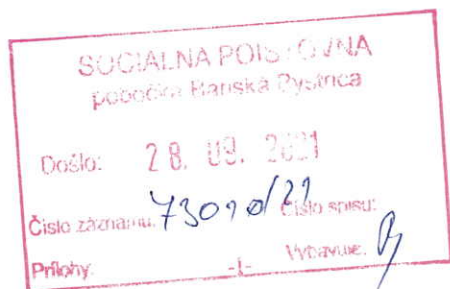 SOCIÁLNA POISŤOVŇA
pobočka Banská Bystrica
Došlo: 28. 09. 2021
Číslo záznamu: Číslo spisu:
Prílohy: -1- Vybavuje: